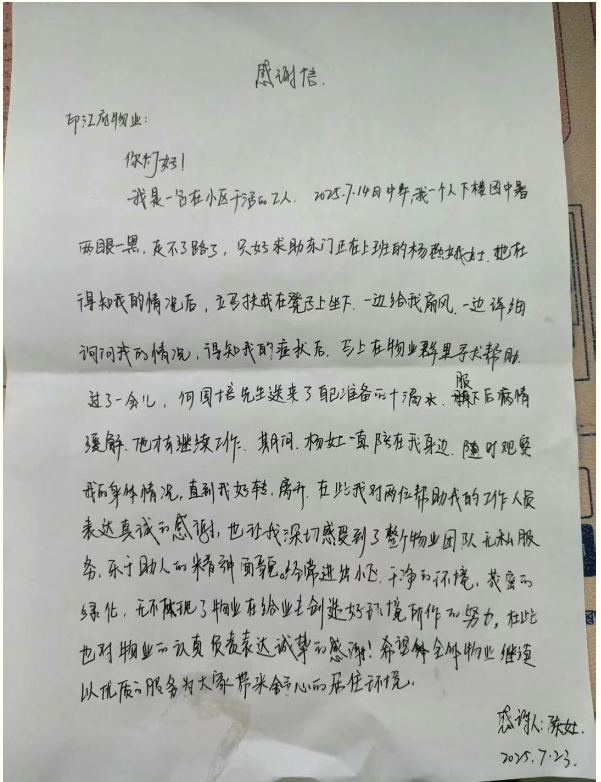 感谢信.
印江府物业:
你们好!
我是一名在小区干活的工人. 2025.7.14日中午,我一个人下楼因中暑
两眼一黑, 走不了路了, 只好求助东门正在上班的杨燕娥女士. 她在
得知我的情况后, 立马扶我在凳子上坐下. 一边给我扇风. 一边详细
询问我的情况, 得知我的症状后. 马上在物业群里寻求帮助.
过了一会儿, 何国培先生送来了自己准备的十滴水. 服下后病情
缓解. 他才有继续工作. 期间. 杨女士一直陪在我身边. 随时观察
我的身体情况, 直到我好转. 离开. 在此我对两位帮助我的工作人员
表达真诚的感谢, 也让我深切感受到了整个物业团队无私服
务, 乐于助人的精神面貌。经常进出小区. 干净的环境, 茂密的
绿化, 无不体现了物业在给业主创造好环境所作的努力, 在此
也对物业的认真负责表达诚挚的感谢! 希望全体物业继续
以优质的服务为大家带来舒心的居住环境.
感谢人: 陈女士.
2025.7.23.